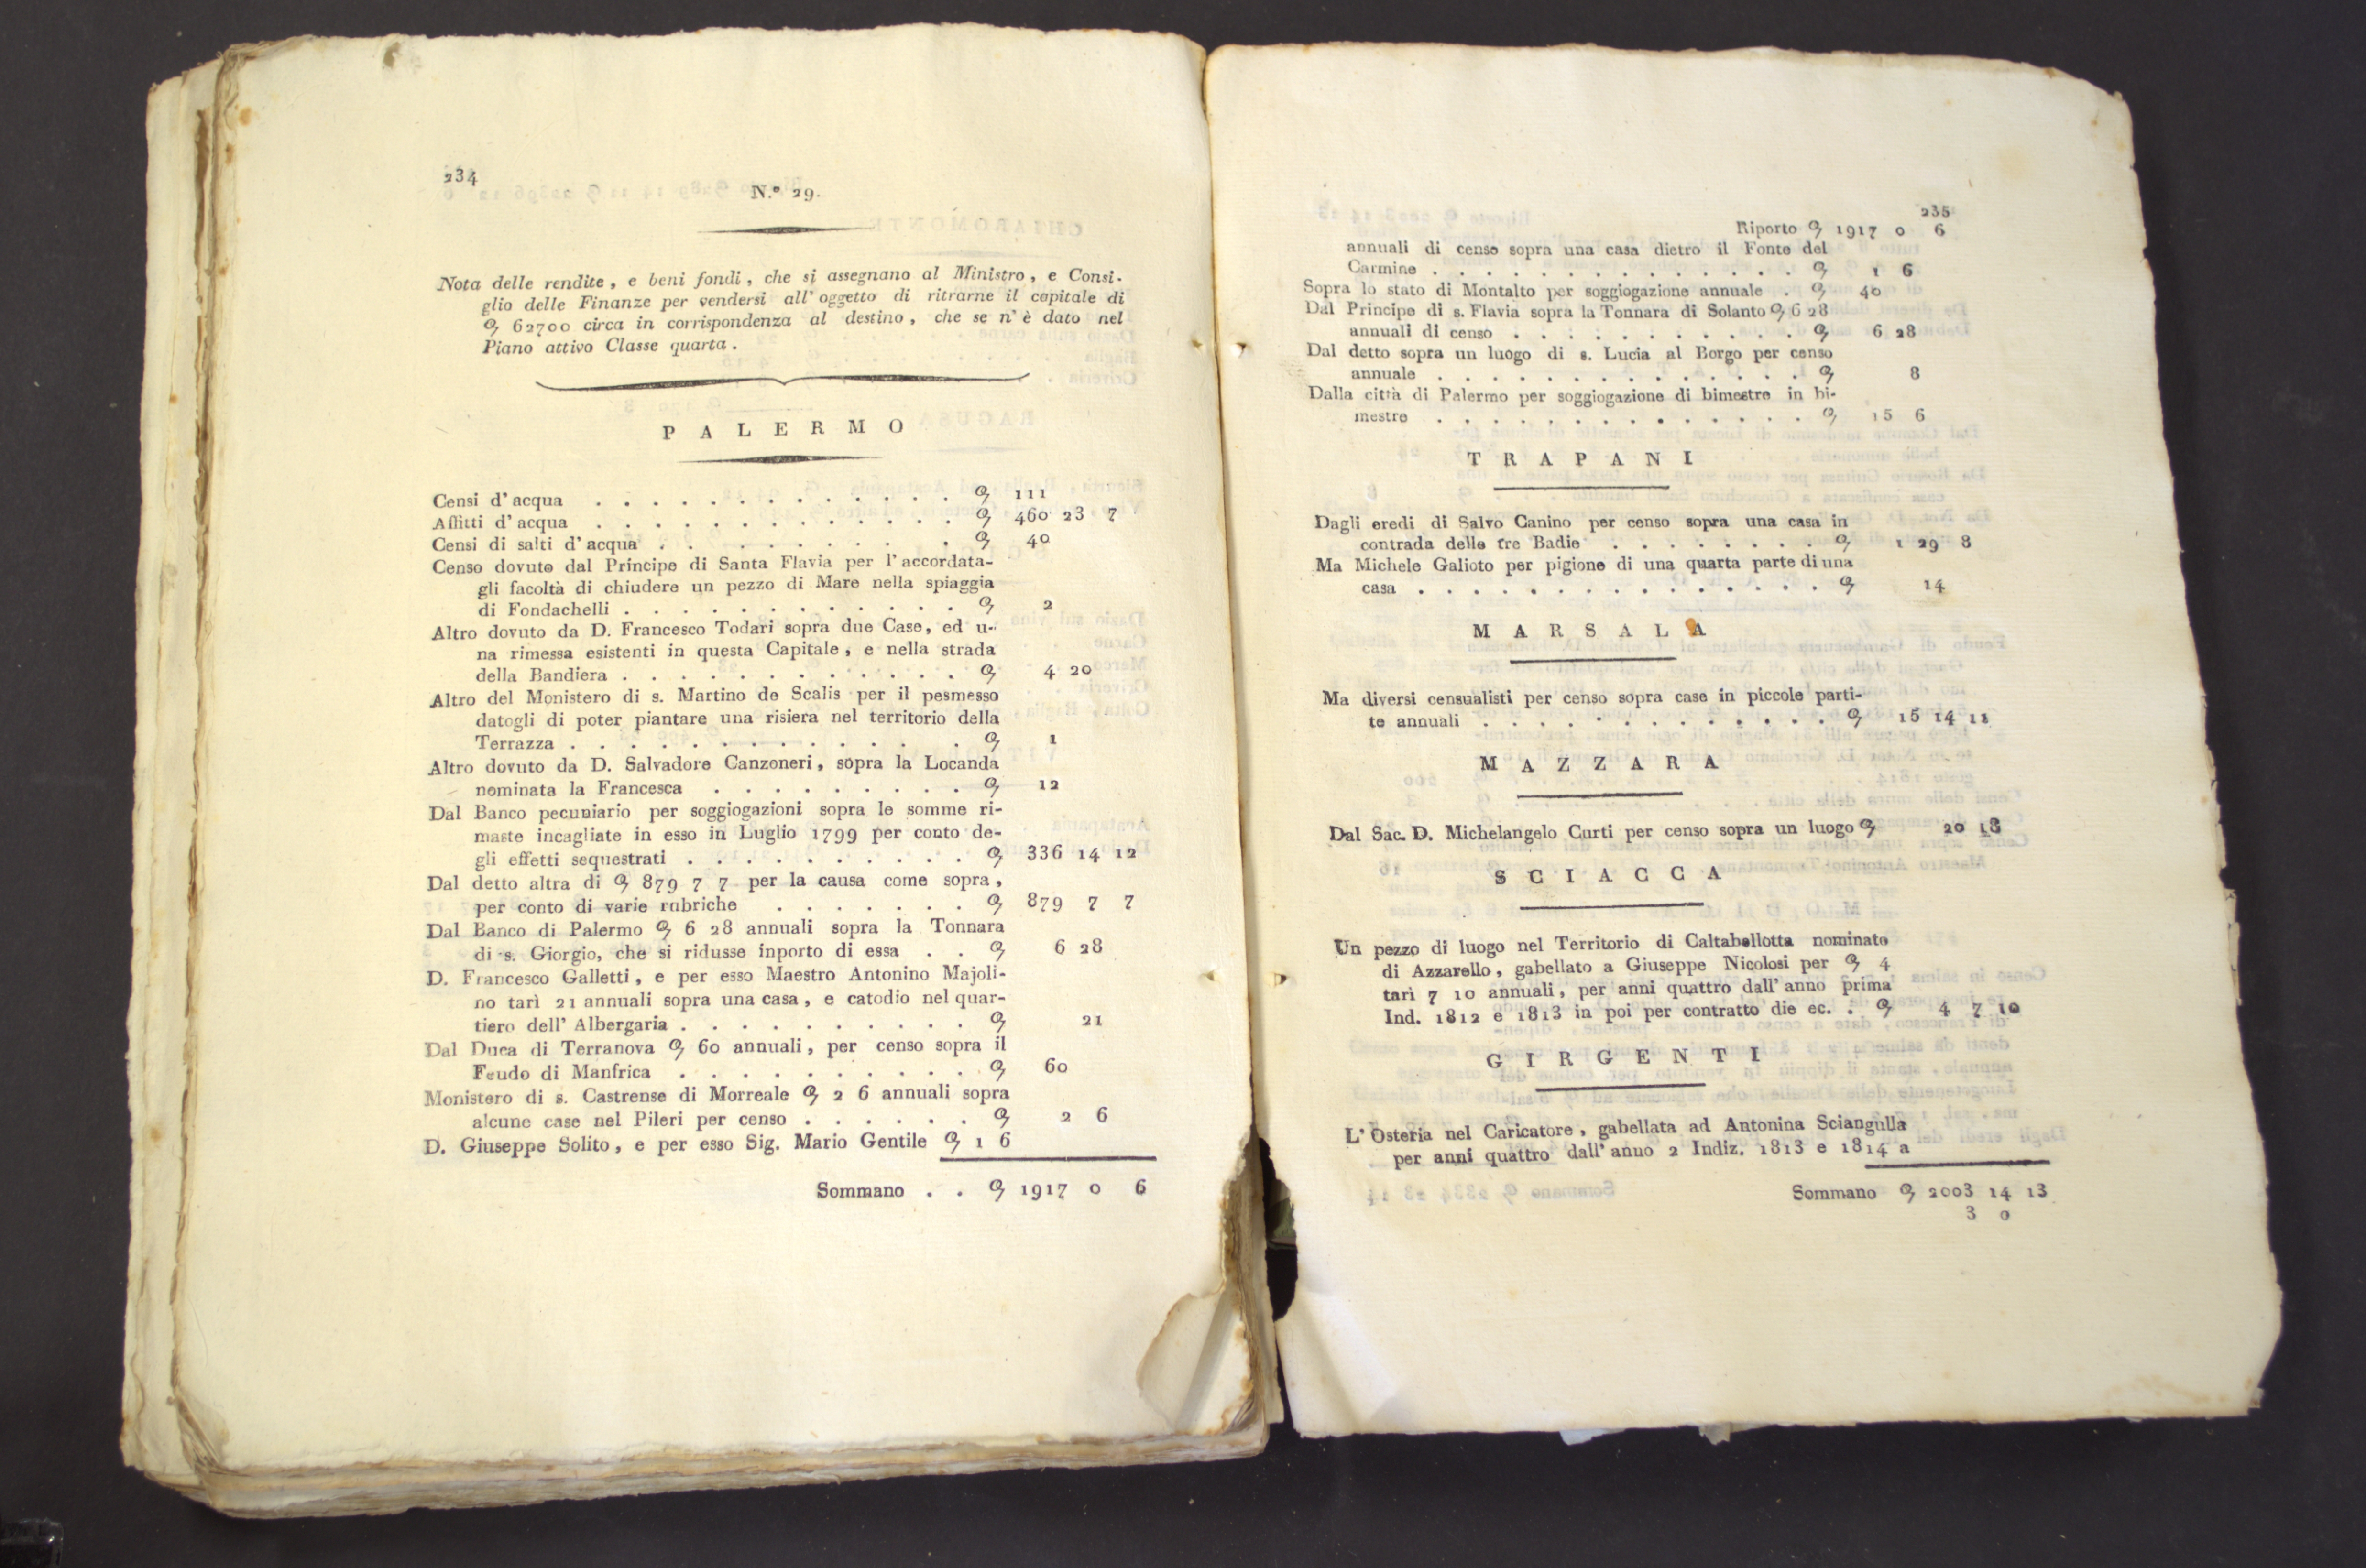 234
N.° 29.
Nota delle rendite, e beni fondi, che si assegnano al Ministro, e Consi-
glio delle Finanze per vendersi all' oggetto di ritrarne il capitale di
62700 circa in corrispondenza al destino, che se n' è dato nel
Piano attivo Classe quarta.
PALERMO
Censi d' acqua . . . . . . . . . . . . . 111
Affitti d' acqua . . . . . . . . . . . . . 460 23 7
Censi di salti d' acqua . . . . . . . . . . 40
Censo dovuto dal Principe di Santa Flavia per l' accordata-
gli facoltà di chiudere un pezzo di Mare nella spiaggia
di Fondachelli . . . . . . . . . . . . 2
Altro dovuto da D. Francesco Todari sopra due Case, ed u-
na rimessa esistenti in questa Capitale, e nella strada
della Bandiera . . . . . . . . . . . . 4 20
Altro del Monistero di s. Martino de Scalis per il pesmesso
datogli di poter piantare una risiera nel territorio della
Terrazza . . . . . . . . . . . . . . 1
Altro dovuto da D. Salvadore Canzoneri, sopra la Locanda
nominata la Francesca . . . . . . . . . 12
Dal Banco pecuniario per soggiogazioni sopra le somme ri-
maste incagliate in esso in Luglio 1799 per conto de-
gli effetti sequestrati . . . . . . . . . . 336 14 12
Dal detto altra di 879 7 7 per la causa come sopra,
per conto di varie rubriche . . . . . . . 879 7 7
Dal Banco di Palermo 6 28 annuali sopra la Tonnara
di s. Giorgio, che si ridusse inporto di essa . . 6 28
D. Francesco Galletti, e per esso Maestro Antonino Majoli-
no tarì 21 annuali sopra una casa, e catodio nel quar-
tiero dell' Albergaria . . . . . . . . . . 21
Dal Duca di Terranova 60 annuali, per censo sopra il
Feudo di Manfrica . . . . . . . . . . 60
Monistero di s. Castrense di Morreale 2 6 annuali sopra
alcune case nel Pileri per censo . . . . . . 2 6
D. Giuseppe Solito, e per esso Sig. Mario Gentile 1 6
Sommano . . 1917 0 6
235
Riporto 1917 0 6
annuali di censo sopra una casa dietro il Fonte del
Carmine . . . . . . . . . . . . . . 1 6
Sopra lo stato di Montalto per soggiogazione annuale . 40
Dal Principe di s. Flavia sopra la Tonnara di Solanto 6 28
annuali di censo . . . . . . . . . . . 6 28
Dal detto sopra un luogo di s. Lucia al Borgo per censo
annuale . . . . . . . . . . . . . . 8
Dalla città di Palermo per soggiogazione di bimestre in bi-
mestre . . . . . . . . . . . . . . . 15 6
TRAPANI
Dagli eredi di Salvo Canino per censo sopra una casa in
contrada delle tre Badie . . . . . . . . 1 29 8
Ma Michele Galioto per pigione di una quarta parte di una
casa . . . . . . . . . . . . . . . 14
MARSALA
Ma diversi censualisti per censo sopra case in piccole parti-
te annuali . . . . . . . . . . . . . 15 14 11
MAZZARA
Dal Sac. D. Michelangelo Curti per censo sopra un luogo 20 18
SCIACCA
Un pezzo di luogo nel Territorio di Caltabellotta nominato
di Azzarello, gabellato a Giuseppe Nicolosi per 4
tarì 7 10 annuali, per anni quattro dall' anno prima
Ind. 1812 e 1813 in poi per contratto die ec. . 4 7 10
GIRGENTI
L' Osteria nel Caricatore, gabellata ad Antonina Sciangulla
per anni quattro dall' anno 2 Indiz. 1813 e 1814 a
Sommano 2003 14 13
3 0